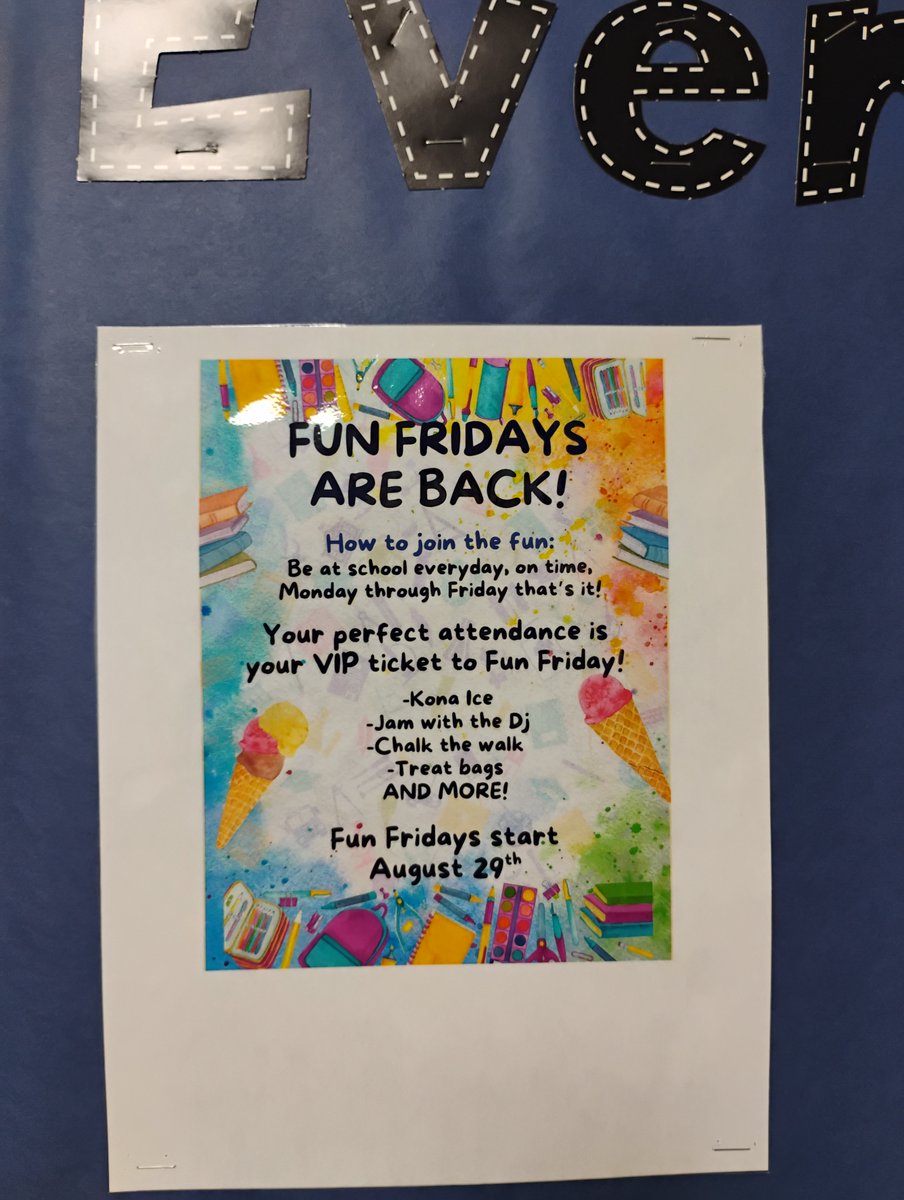 Ever
FUN FRIDAYS
ARE BACK!
How to join the fun:
Be at school everyday, on time,
Monday through Friday that's it!
Your perfect attendance is
your VIP ticket to Fun Friday!
-Kona Ice
-Jam with the Dj
-Chalk the walk
-Treat bags
AND MORE!
Fun Fridays start
August 29th